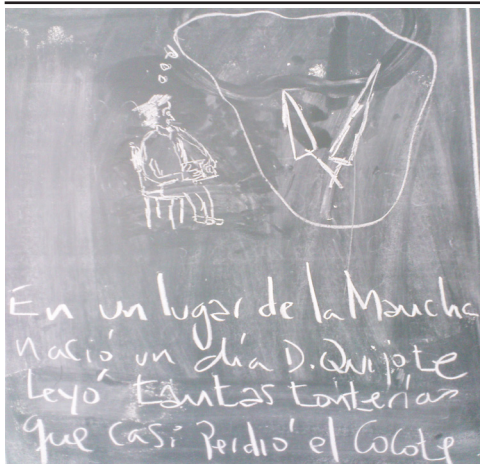 En un lugar de la Mancha
nació un día D. Quijote
Leyó tantas tonterías
que casi perdió el Cocote